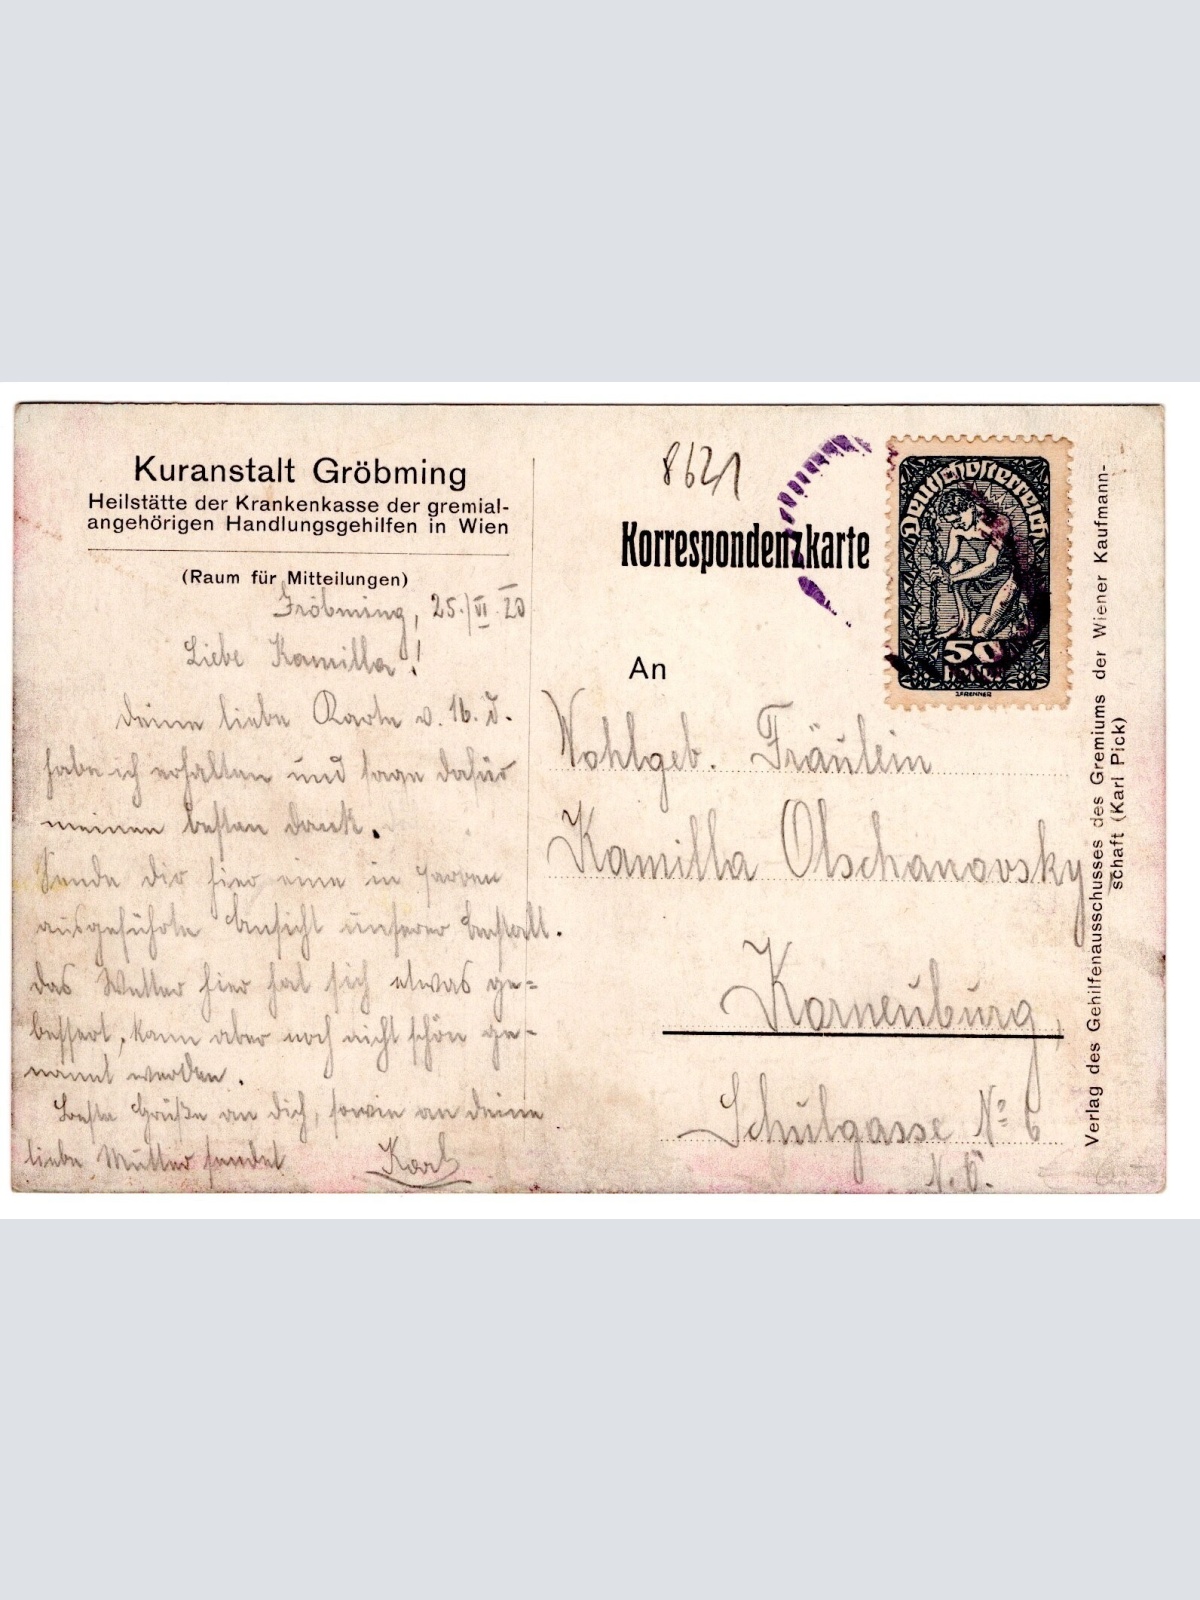 Kuranstalt Gröbming
Heilstätte der Krankenkasse der gremial-
angehörigen Handlungsgehilfen in Wien
(Raum für Mitteilungen)
Gröbming, 25./VI. 20
Liebe Kamilla!
Deine liebe Karte v. 16. d.
habe ich erhalten und sage dafür
meinen besten Dank.
Sende dir hier eine in Farben
ausgeführte Ansicht unserer Anstalt.
Das Wetter hier hat sich etwas ge=
bessert, kann aber noch nicht schön ge-
nannt werden.
Beste Grüße an dich, sowie an deine
liebe Mutter sendet Karl
8621
Korrespondenzkarte
Deutschösterreich
50
J.F.RENNER
An
Wohlgeb. Fräulein
Kamilla Olschanovsky
Korneuburg,
Schulgasse No 6
N.Ö.
Verlag des Gehilfenausschusses des Gremiums der Wiener Kaufmann-
schaft (Karl Pick)